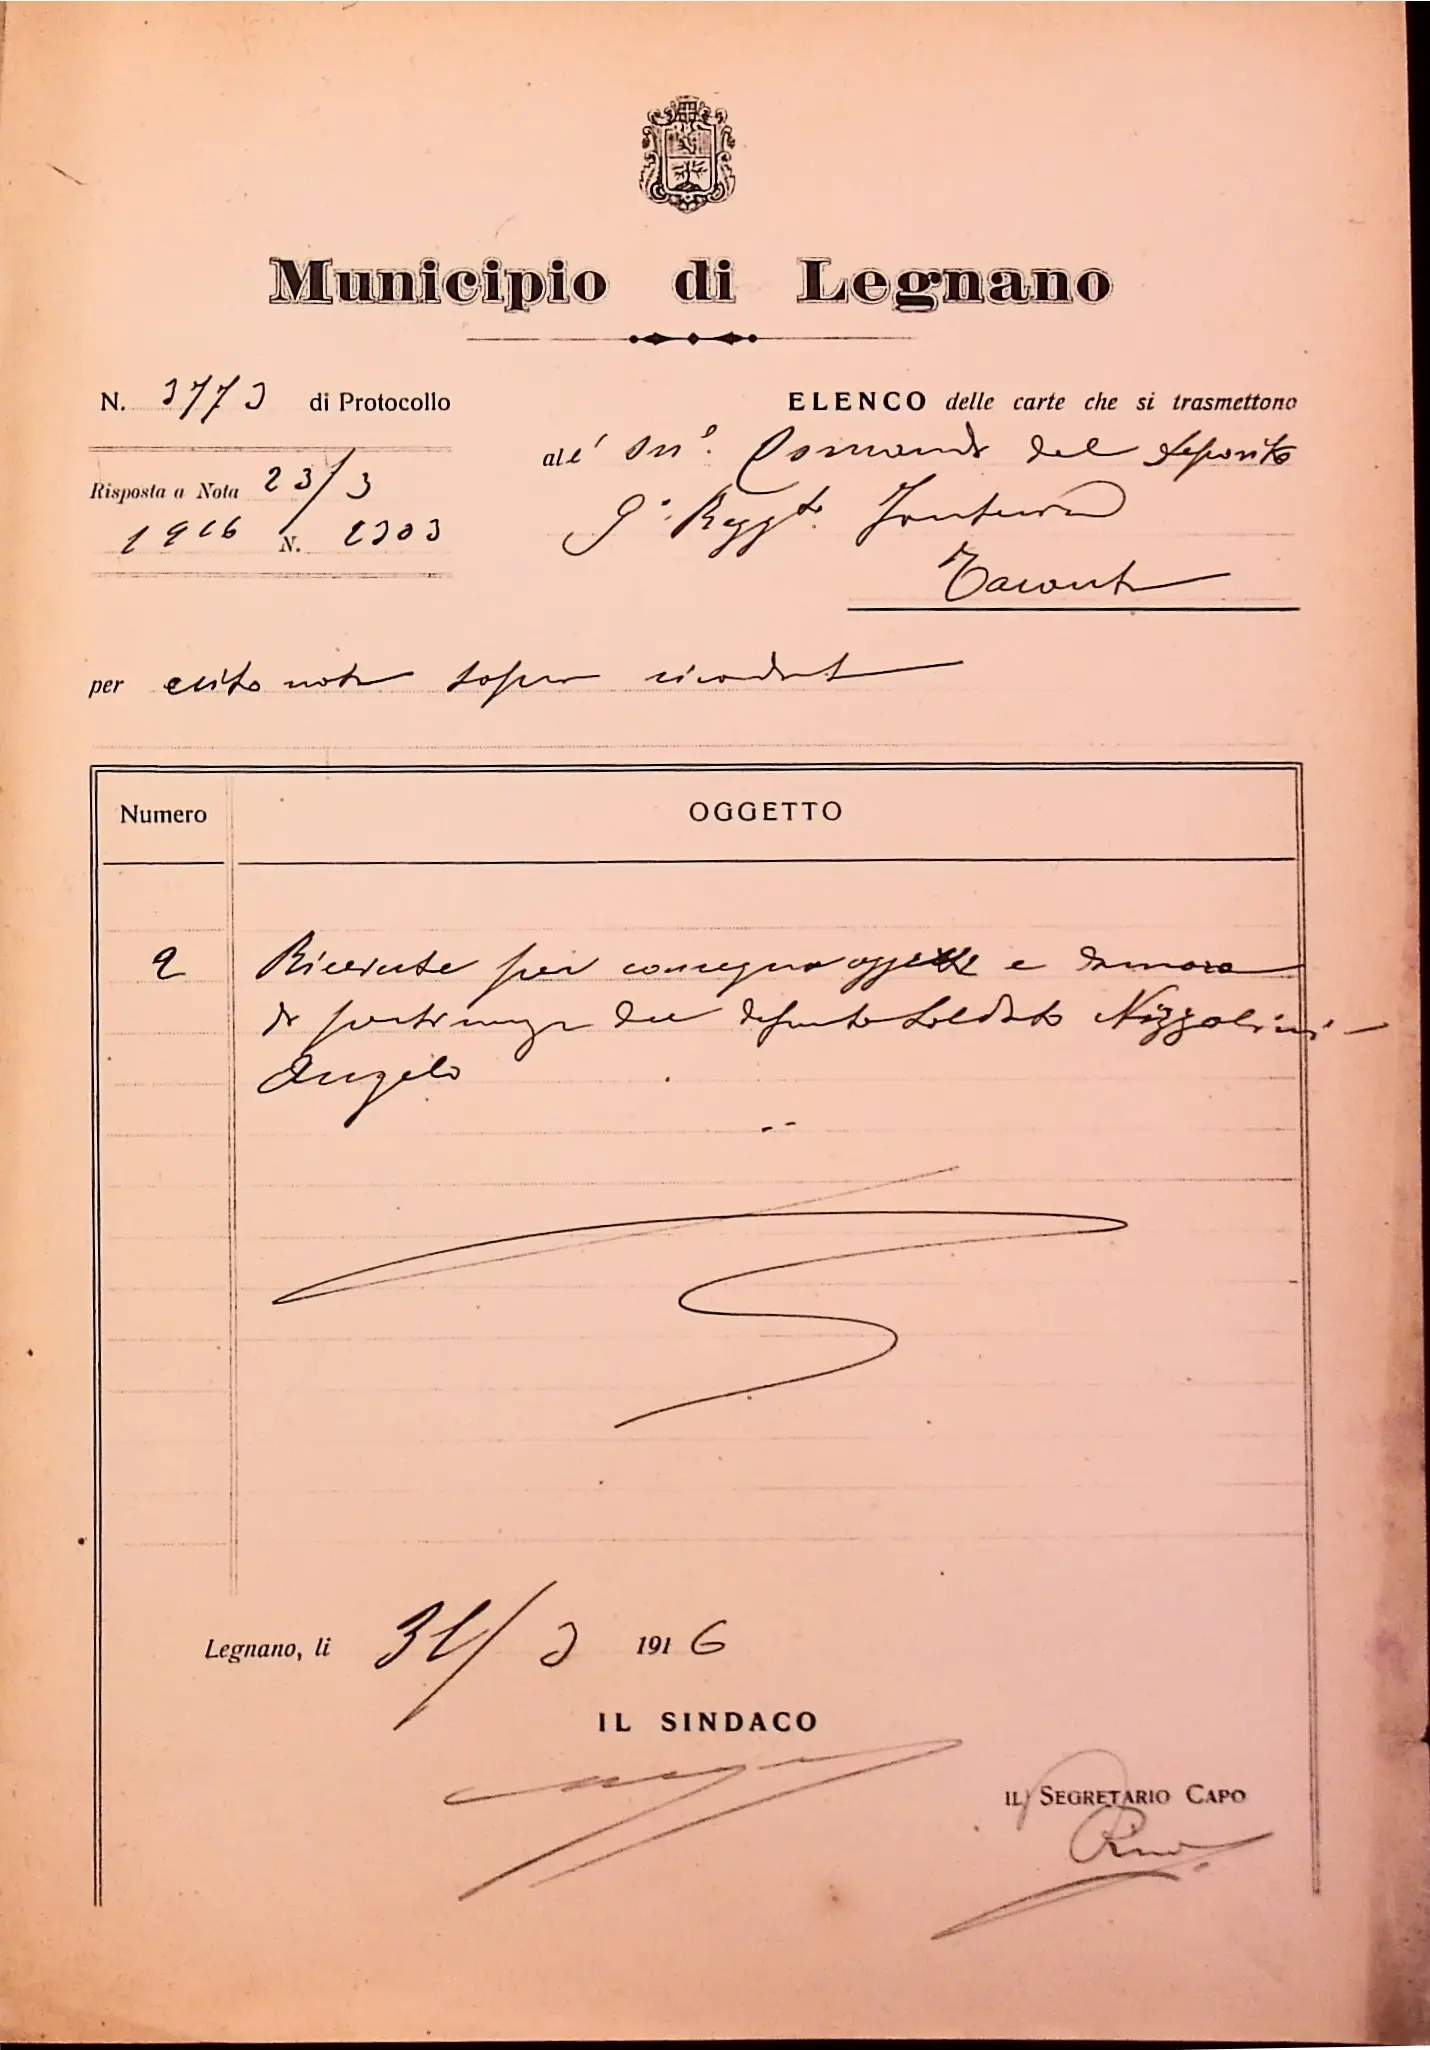 Municipio di Legnano
N. 3773 di Protocollo
ELENCO delle carte che si trasmettono
all' On. Comando del Deposito
Risposta a Nota 23/3
9° Reggto Fanteria
1916 N. 2303
Taranto
per esito nota sopra ricordata
Numero
OGGETTO
2 Ricevute per consegna oggetti e denaro
di pertinenza del defunto soldato Nizzolini
Angelo
Legnano, li 31/3 1916
IL SINDACO
IL SEGRETARIO CAPO